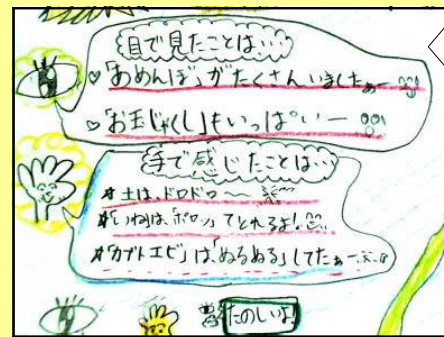 目で見たことは…
♡「あめんぼ」がたくさんいましたぁー
♡「お玉じゃくし」もいっぱいー
手で感じたことは…
#土は、ドロドロ〜〜
#「いね」は「ポロッ」てとれるよ!
#「カブトエビ」は「ぬるぬる」してたぁー
たのしいよ!